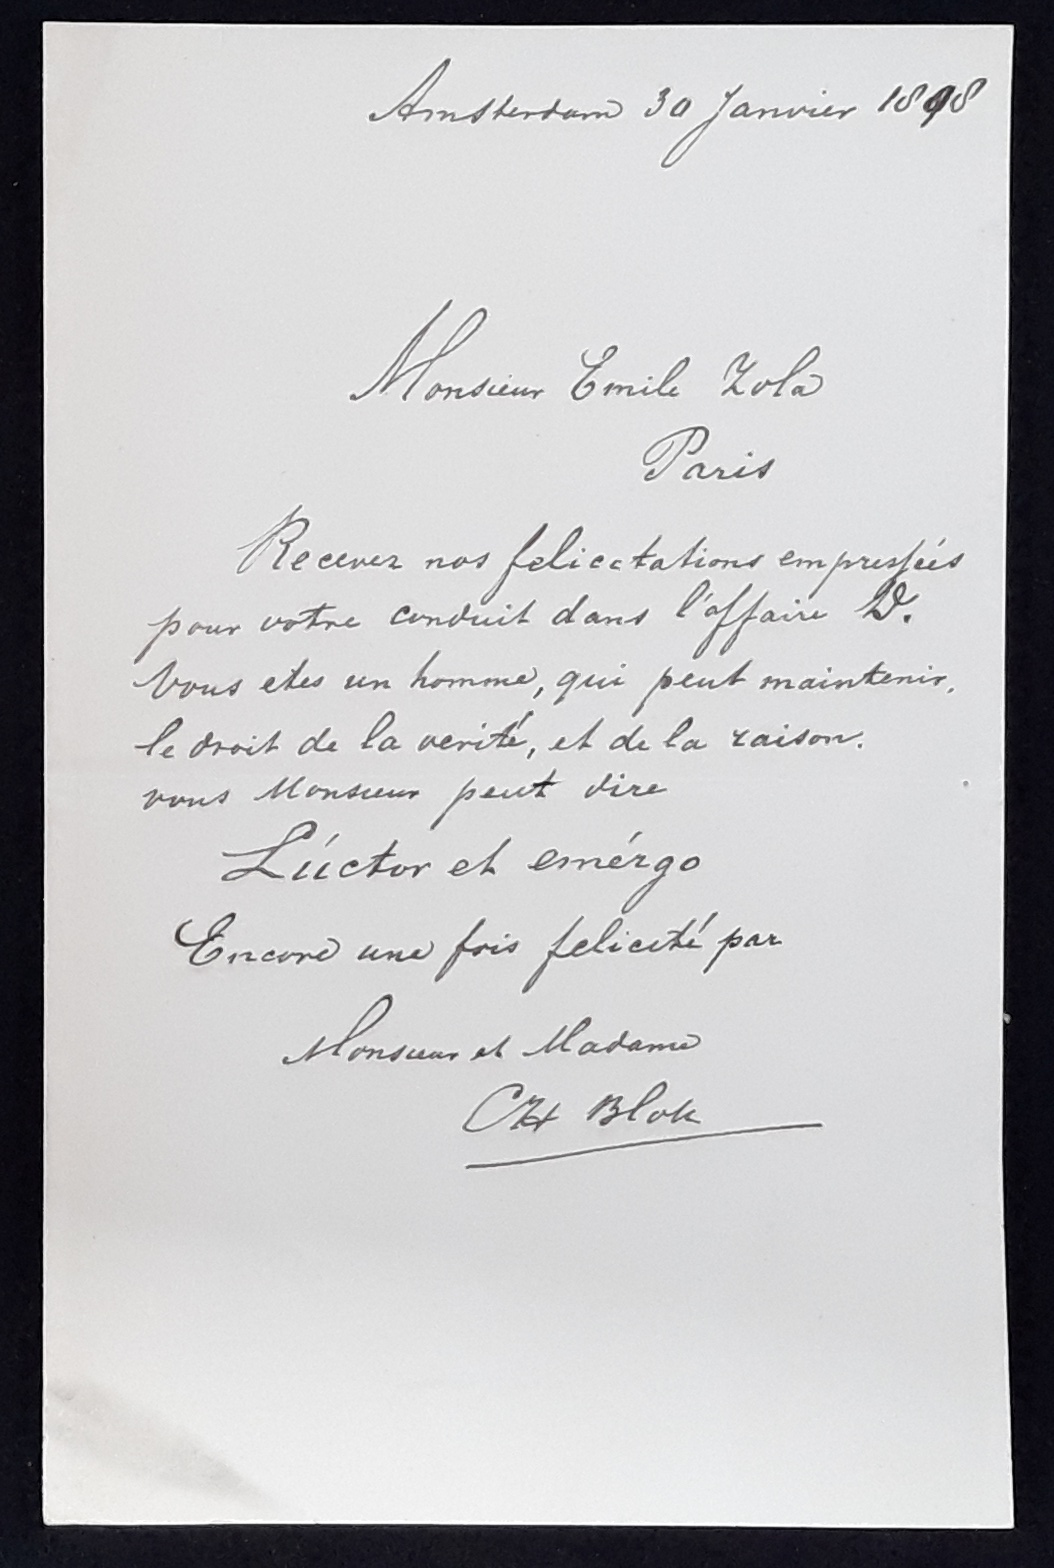 Amsterdam 30 Janvier 1898
Monsieur Emile Zola
Paris
Recevez nos felicitations empressées
pour votre conduit dans l'affaire D.
Vous etes un homme, qui peut maintenir,
le droit de la verité, et de la raison.
vous Monsieur peut dire
Lúctor et emérgo
Encore une fois felicité par
Monsieur et Madame
Blok